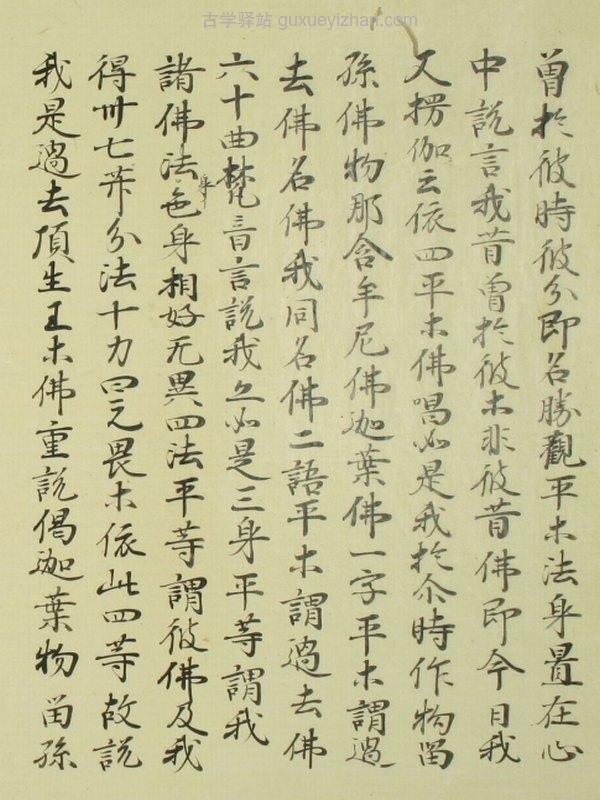 古学驿站 guxueyizhan.com
曾於彼時彼分即名勝觀平等法身置在心
中說言我昔曾於彼等非彼昔佛即今日我
又楞伽云依四平等佛唱如是我於尒時作拘留
孫佛拘那含牟尼佛迦葉佛一字平等謂過
去佛名佛我同名佛二語平等謂過去佛
六十曲梵音言說我亦如是三身平等謂我
諸佛法身色身相好无異四法平等謂彼佛及我
得卅七菩分法十力四无畏等依此四等故說
我是過去頂生王等佛重說偈迦葉拘留孫